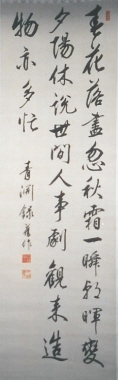 春花落盡忽秋霜一瞬朝暉變
夕陽休説世間人事劇觀来造
物亦多忙
青淵録舊作